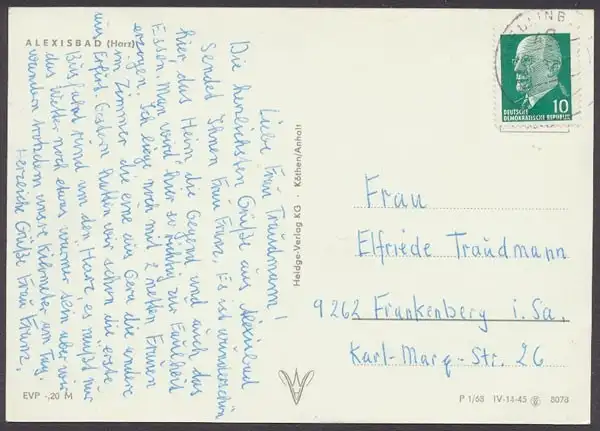 ALEXISBAD (Harz)
Liebe Frau Traudmann!
Die herzlichsten Grüße aus Alexisbad
Sendet Ihnen Frau Franz. Es ist wunderschön
hier, das Heim die Gegend und auch das
Essen. Man wird hier so richtig zur Faulheit
erzogen. Ich liege noch mit 2 netten Frauen
im Zimmer die eine aus Gera die andere
aus Erfurt. Gestern hatten wir schon die erste
Busfahrt rund um den Harz, es müßt nur
das Wetter noch etwas warmer sein aber wir
wandern trotzdem unsre Kilometer am Tag.
Herzliche Grüße Frau Franz.
EVP -,20 M
Heldge-Verlag KG · Köthen/Anhalt
DEUTSCHE
DEMOKRATISCHE REPUBLIK
10
Frau
Elfriede Traudmann
9262 Frankenberg i. Sa.
Karl-Marx-Str. 26
P 1/68 IV-14-45 8078